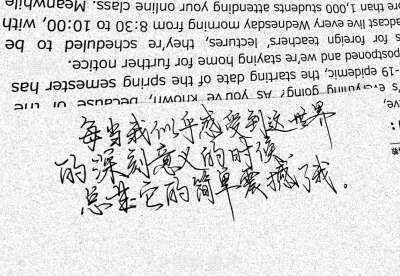 ve,
's everything going? As you've known, because of the
-19 epidemic, the starting date of the spring semester has
postponed and we're staying home for further notice.
s for foreign teachers' lectures, they're scheduled to be
adcast live every Wednesday morning from 8:30 to 10:00, with
re than 1,000 students attending your online class. Meanwhile
每当我似乎感受到这世界
的深刻意义的时候,
总是它的简单震撼了我。